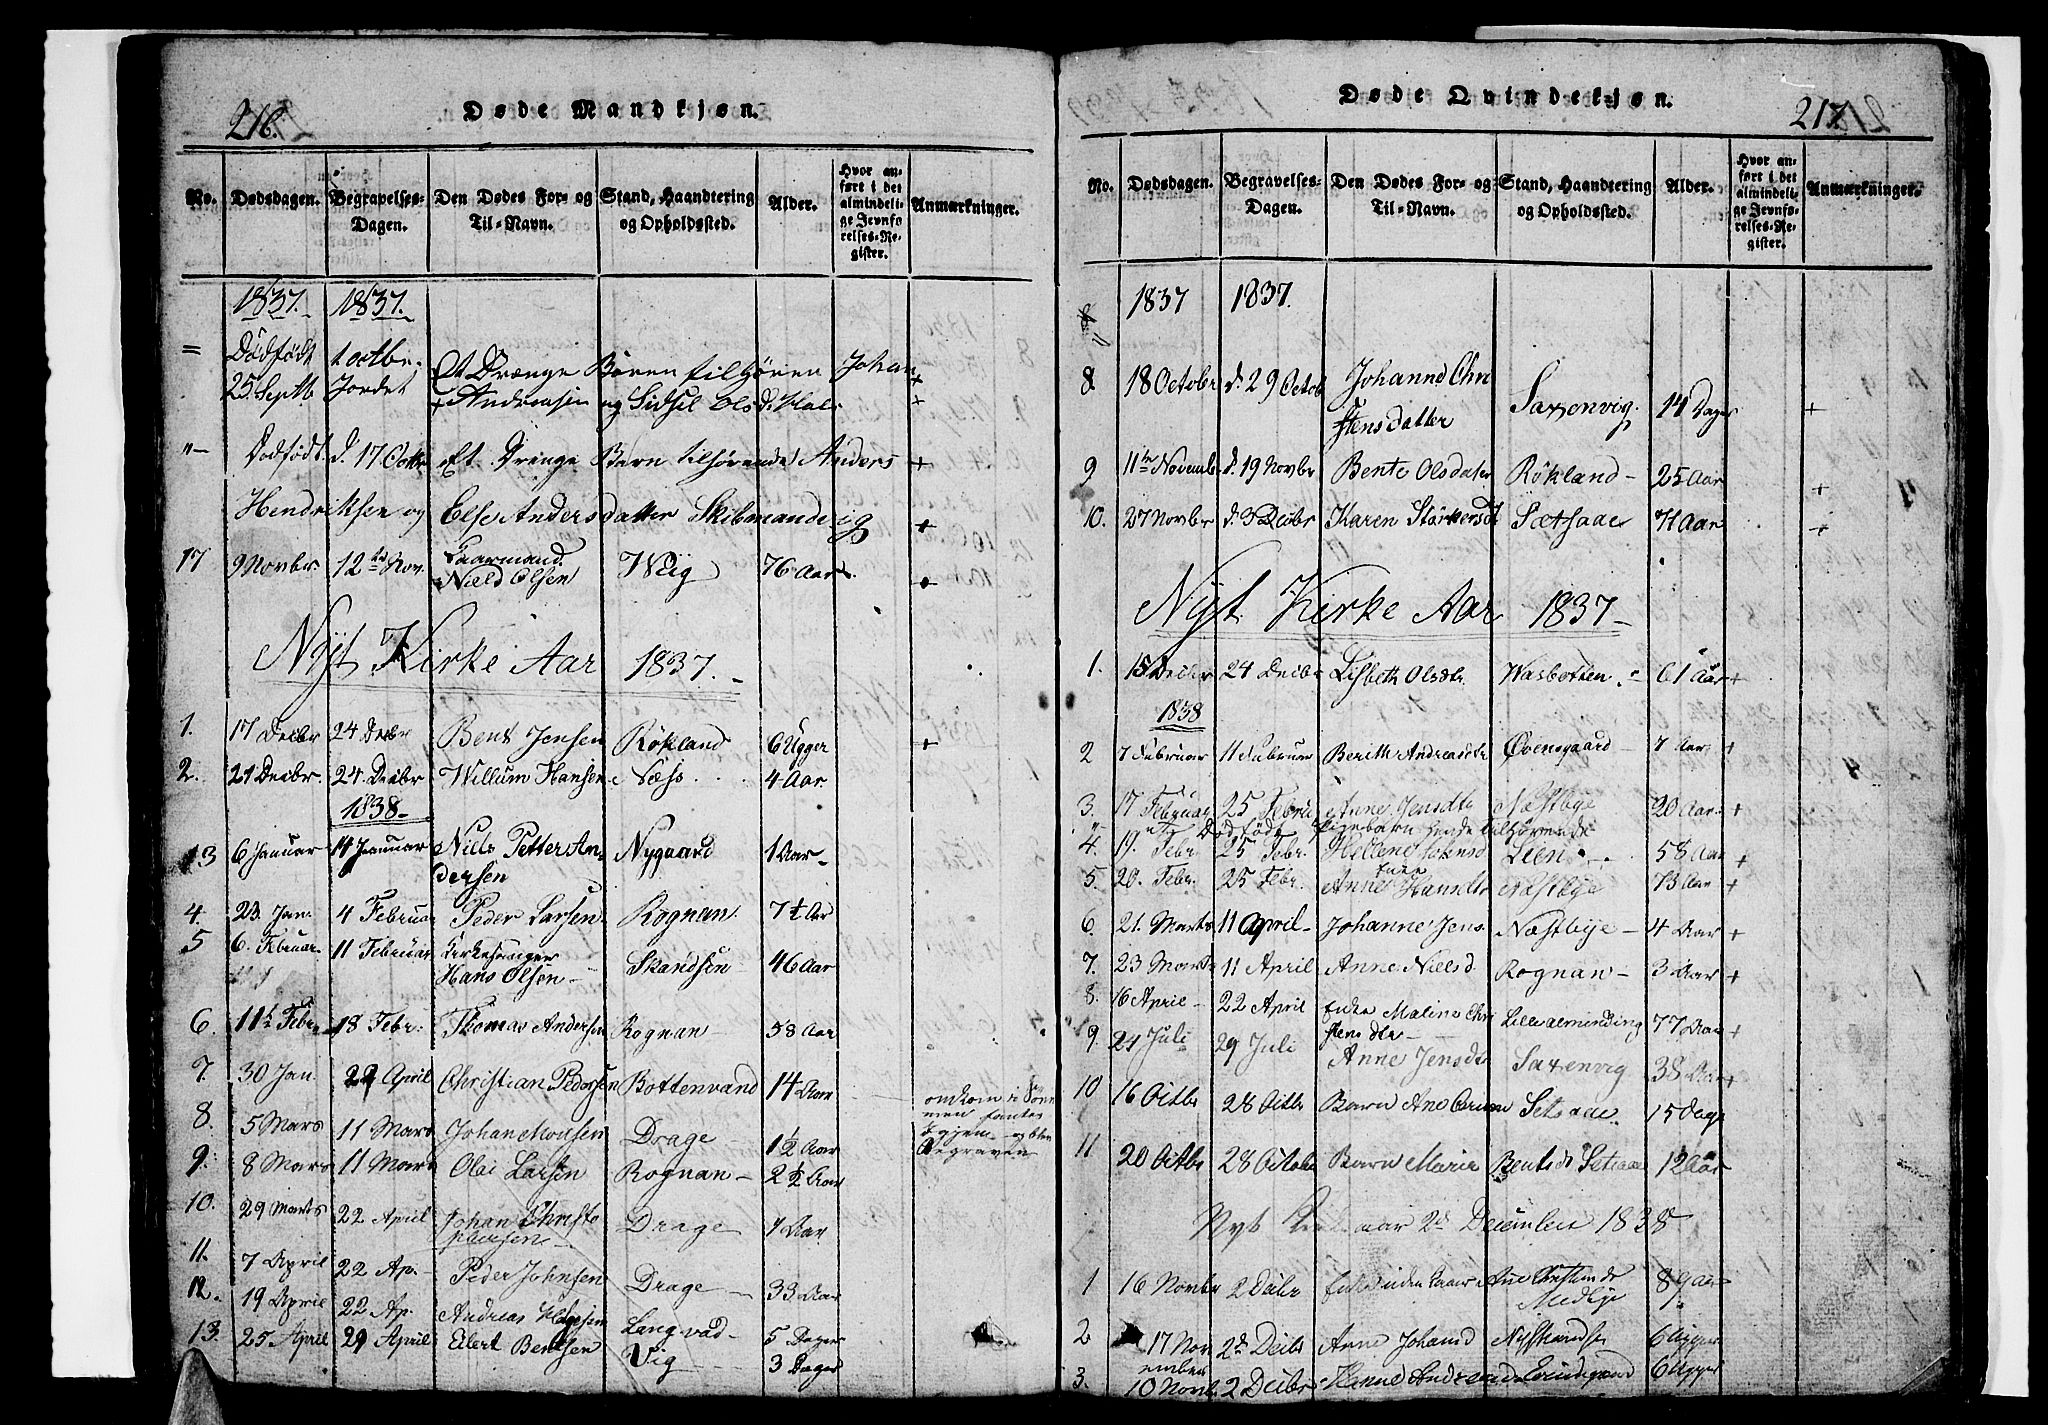 216.
Døde Mandkjøn.
No. Dødsdagen. Begravelses-Dagen. Den Dødes For- og Til-Navn. Stand, Haandtering og Opholdssted. Alder. Hvor anført i det almindelige Jevnførelses-Register. Anmærkninger.
1837. 1837.
= Dødfødt 1 octbr. Et Drænge Børen tilhören Johan +
25 Septb Jordet + Andreasen og Sidsel Olsd. +
"- Dødfödt. d. 17 Octbr et Drenge Barn tilhørende Anders +
Hendriksen og Else Andersdatter Skibmandvig +
17 9 Novbr 12te Nov. Gaarmand Niels Olsen Wiig 76 Aar +
Nyt Kirke Aar 1837. -
1. 17 Decbr 24 Decbr Bent Jensen Rökland 6 Ugger +
2. 21 Decbr. 24 Decbr Willum Hansen Næss 4 Aar
1838-
13 6 Januar 14 Januar Niels Petter Andersen Nygaard 1 Aar-
4. 23. Jan. 4 Februar Peder Larsen Rognan. 7½ Aar
5 6. Februar 11 Februar Kirkesanger Hans Olsen - Skandsen - 46 Aar
6. 11te Febr 18 Febr. Thomas Andersen Rognan 58 Aar
7. 30 Jan. 22 April Christian Pedersen Bottenvand 14 Aar omkom i
8. 5 Mars 11 Mars Johan Mousen Drage 1½ Aar
9. 8 Mars 11 Mars Olai Larsen Rognan - 2½ Aar begraven
10. 29 Marts 22 April Johan Christophersen - Drage 1 Aar
11. 7 April 22 Ap. Peder Johnsen Drage 33 Aar
12. 19 April 22 Ap. Andreas Langvad - 5 Dager
13. 25 April 29 April Eilert Bentsen Vig 3 Dager
Døde Qvindekjøn.
217.
No. Dødsdagen. Begravelses-Dagen. Den Dødes For- og Til-Navn. Stand, Haandtering og Opholdssted. Alder. Hvor anført i det almindelige Jevnførelses-Register. Anmærkninger.
1837 1837.
8 18 Octobr d. 29 Octob Johanne Christensdatter Saxenvig. 14 Dager +
9 11te Novemb d. 19 Novbr Bente Olsdater Rökland - 25 Aar +
10. 27 Novbr d. 3 Decbr Karen Störkersdt Sætsaae 71 Aar +
Nyt Kirke Aar 1837 -
1. 15 Decbr 24 Decbr Lisbeth Olsdtr. Wasbotten 61 Aar +
1838
2 7 Februar 11 Februar Berith Andreasdtr Evensgaard - 7 Aar +
3. 17 Februar 25 Febru Anne Jensdtr Næstbye 20 Aar +
" " Dødfødt Pigebarn tilhörende
4. 19. Febr 25 Febr. Hellene Johnsd Leen 58 Aar +
5. 20. Febr. 25 Febr. Enke Anne Hansdtr Næstbye 73 Aar +
6. 21. Marts 11 April - Johanne Jens. Næstbye - 4 Aar +
7. 23 Marts 11 April Anne Nielsd Rognan - 3 Aar +
8. 16 April - 22 April Enke Malene Christensdtr - Lillealmending 77 Aar +
9. 24 Juli 29 Juli Anne Jensdtr Saxenvig 38 Aar +
10 16 Octbr 28 Octbr Barn Ane Setsaae. 15 Dage
11 20 Octbr 28 Octobr Barn Marie Bentsd Setsaae 12 Aar
Nyt Kirkeaar 2d December 1838
1 16 Novbr 2 Decbr Enke Ane Medbye 89 aar
2 17 November 2d Decbr Anne Johansd 6 Ugger
3. 10 Novb. 2 Decbr Hanne 6 Ugger